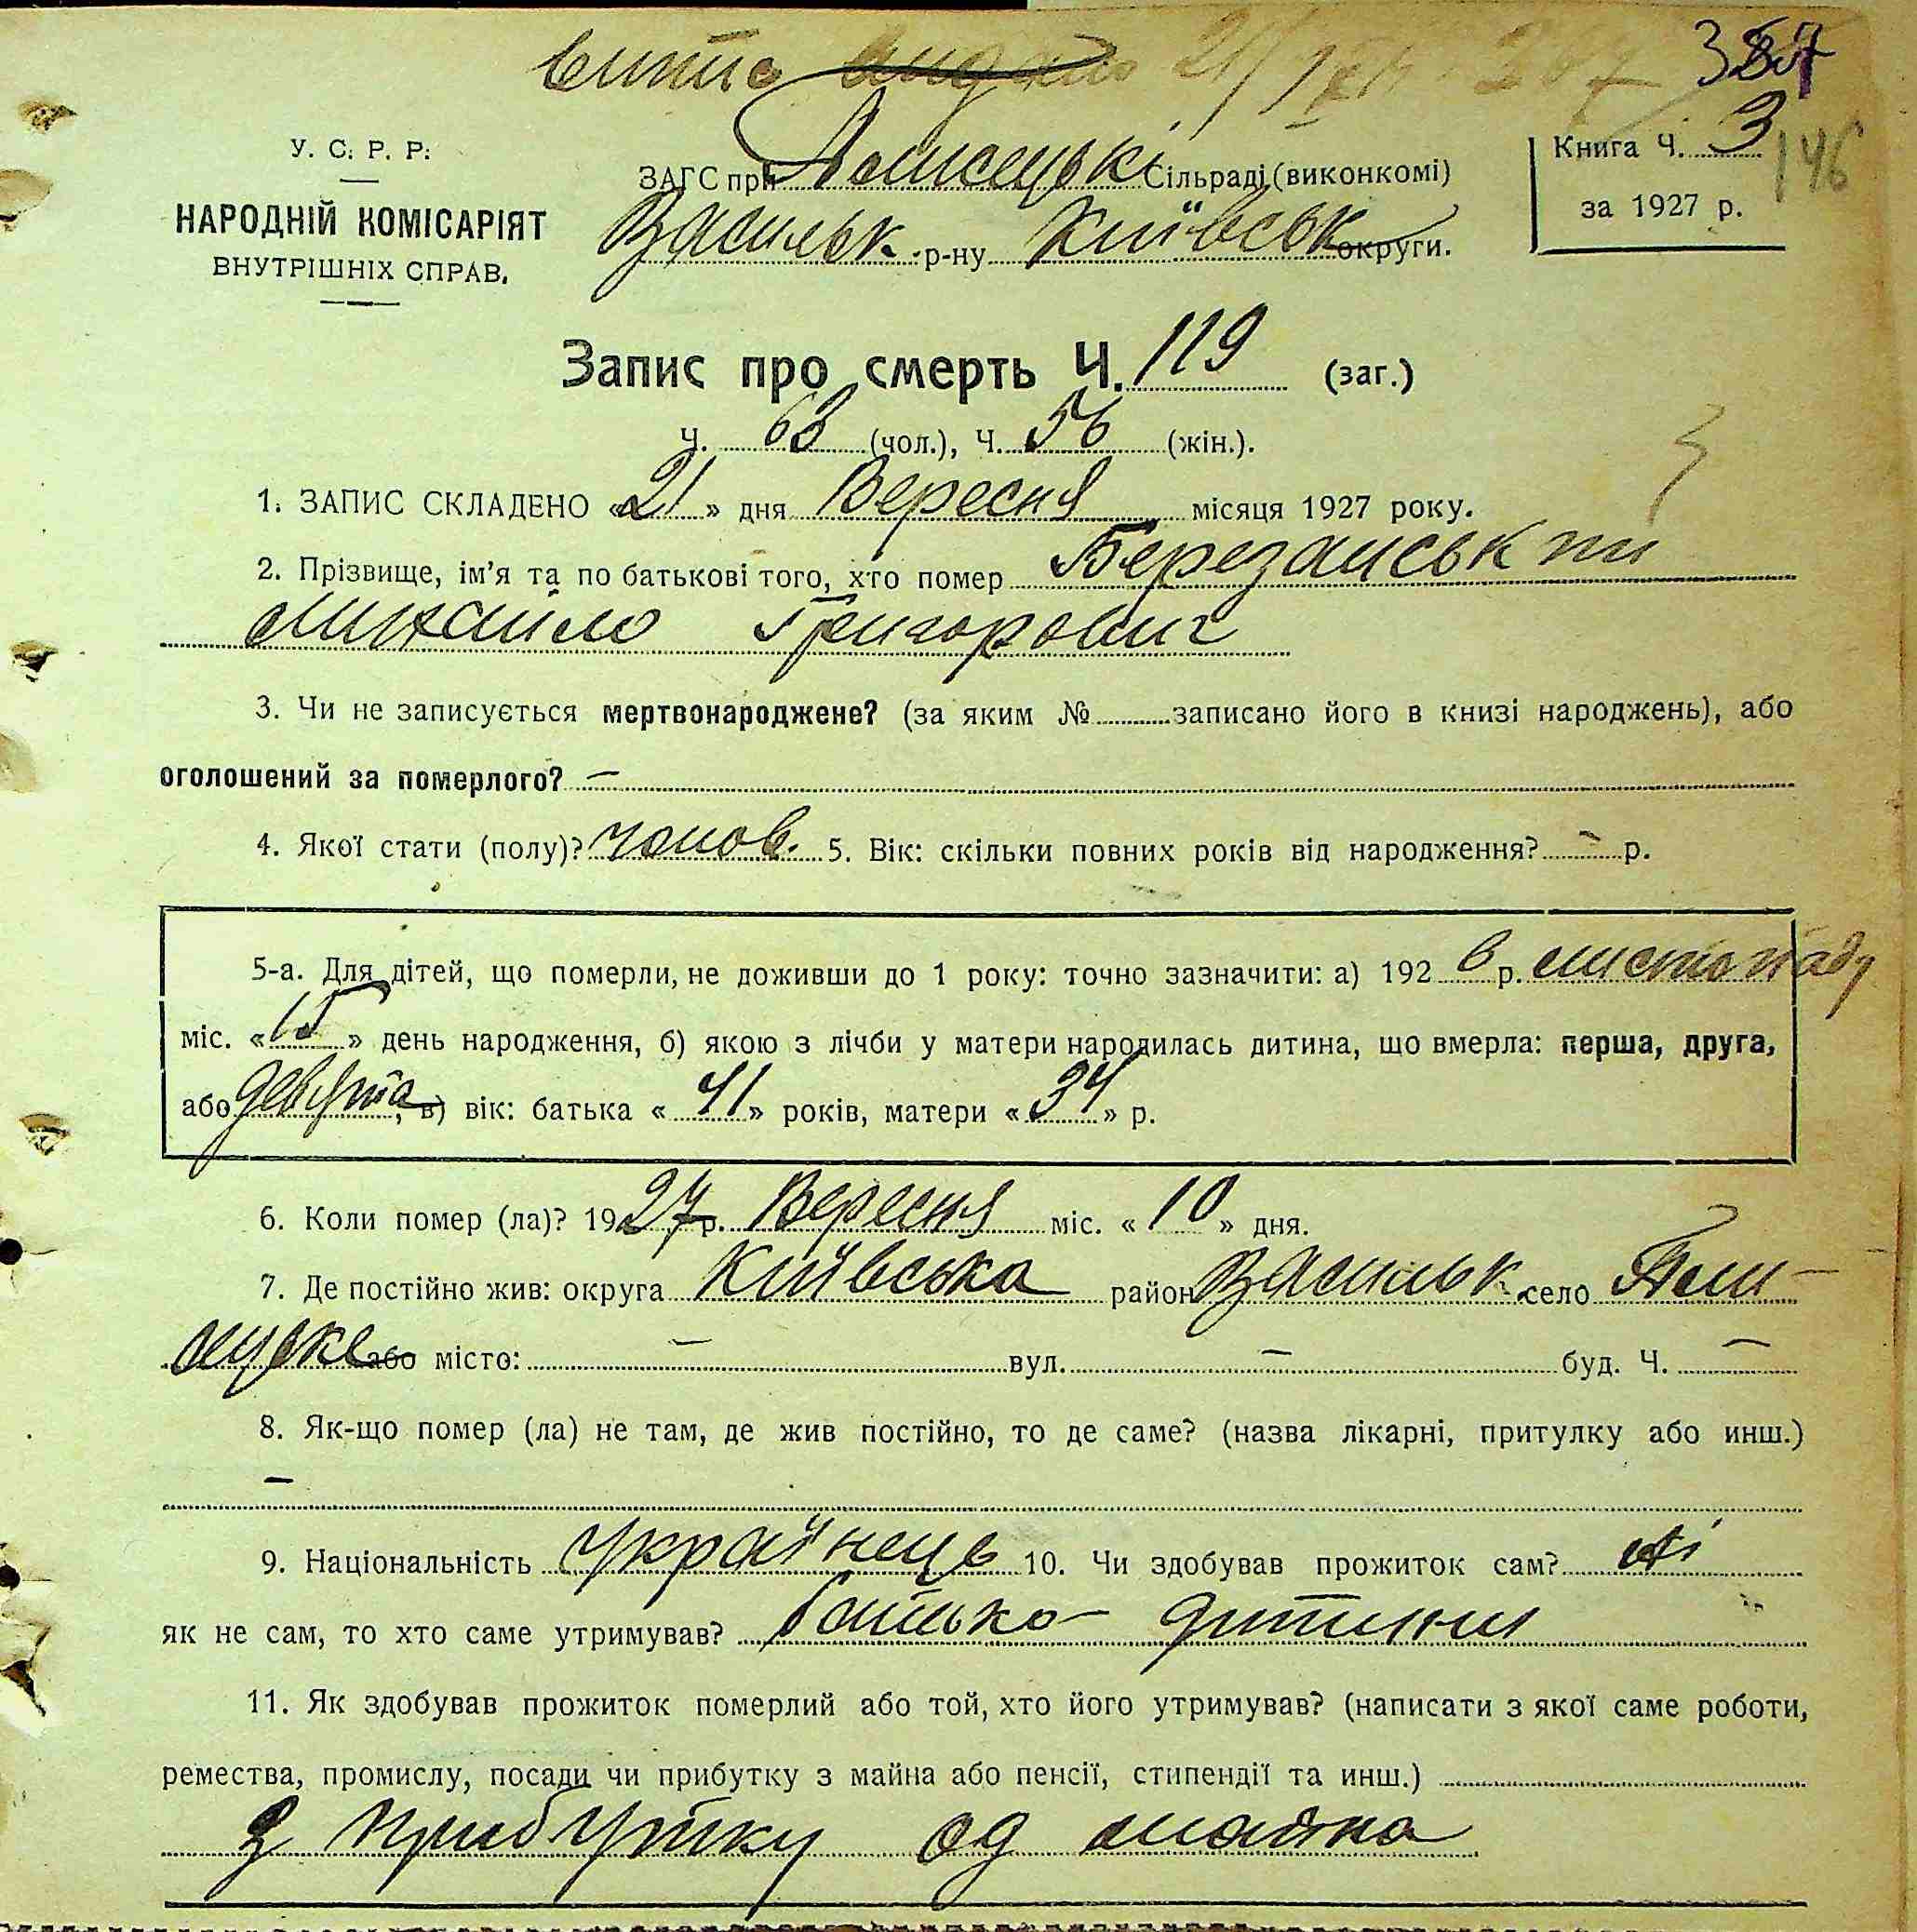 витяг видано 21/IX
387
146
У. С. Р. Р.
НАРОДНІЙ КОМІСАРІЯТ
ВНУТРІШНІХ СПРАВ.
ЗАГС при Сільраді (виконкомі)
Васильк. р-ну Київськ округи.
Книга Ч. 3
за 1927 р.
Запис про смерть Ч. 119 (заг.)
Ч. 63 (чол.), Ч. 56 (жін.).
1. ЗАПИС СКЛАДЕНО «21» дня Вересня місяця 1927 року.
2. Прізвище, ім'я та по батькові того, хто помер Березанський
Михайло Григорович
3. Чи не записується мертвонароджене? (за яким № записано його в книзі народжень), або
оголошений за померлого? —
4. Якої стати (полу)? чолов. 5. Вік: скільки повних років від народження? — р.
5-а. Для дітей, що померли, не доживши до 1 року: точно зазначити: а) 192 6 р. листопаду
міс. «15» день народження, б) якою з лічби у матери народилась дитина, що вмерла: перша, друга,
або девята, в) вік: батька «41» років, матери «34» р.
6. Коли помер (ла)? 1927 р. Вересня міс. «10» дня.
7. Де постійно жив: округа Київська район Васильк. село
або місто: — вул. — буд. Ч. —
8. Як-що помер (ла) не там, де жив постійно, то де саме? (назва лікарні, притулку або инш.)
—
9. Національність українець 10. Чи здобував прожиток сам? ні
як не сам, то хто саме утримував? батько дитини
11. Як здобував прожиток померлий або той, хто його утримував? (написати з якої саме роботи,
ремества, промислу, посади чи прибутку з майна або пенсії, стипендії та инш.)
З прибутку од майна